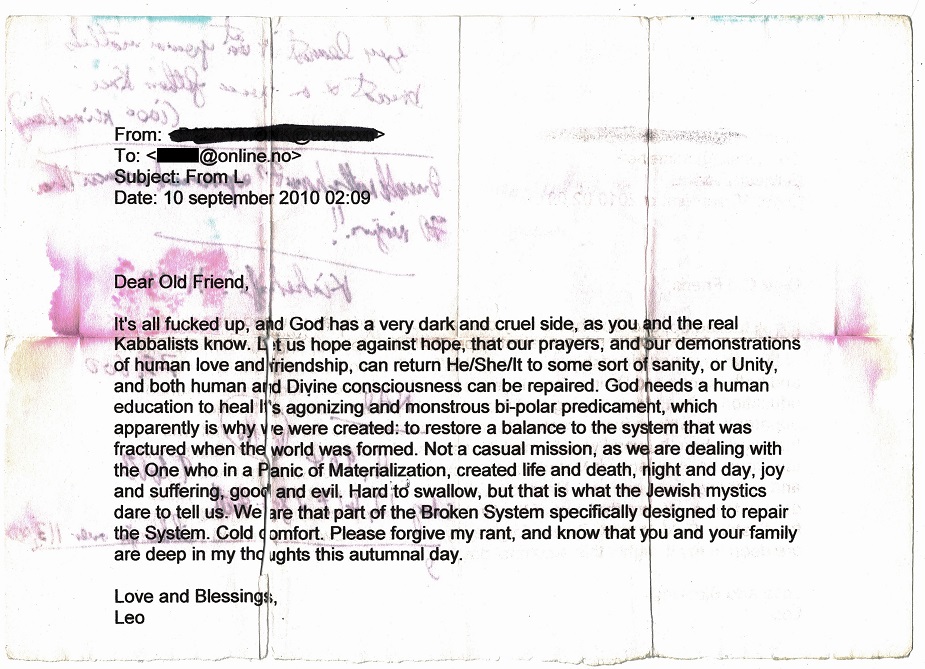 From: <
To: <@online.no>
Subject: From L
Date: 10 september 2010 02:09
Dear Old Friend,
It's all fucked up, and God has a very dark and cruel side, as you and the real
Kabbalists know. Let us hope against hope, that our prayers, and our demonstrations
of human love and friendship, can return He/She/It to some sort of sanity, or Unity,
and both human and Divine consciousness can be repaired. God needs a human
education to heal It's agonizing and monstrous bi-polar predicament, which
apparently is why we were created: to restore a balance to the system that was
fractured when the world was formed. Not a casual mission, as we are dealing with
the One who in a Panic of Materialization, created life and death, night and day, joy
and suffering, good and evil. Hard to swallow, but that is what the Jewish mystics
dare to tell us. We are that part of the Broken System specifically designed to repair
the System. Cold comfort. Please forgive my rant, and know that you and your family
are deep in my thoughts this autumnal day.
Love and Blessings,
Leo